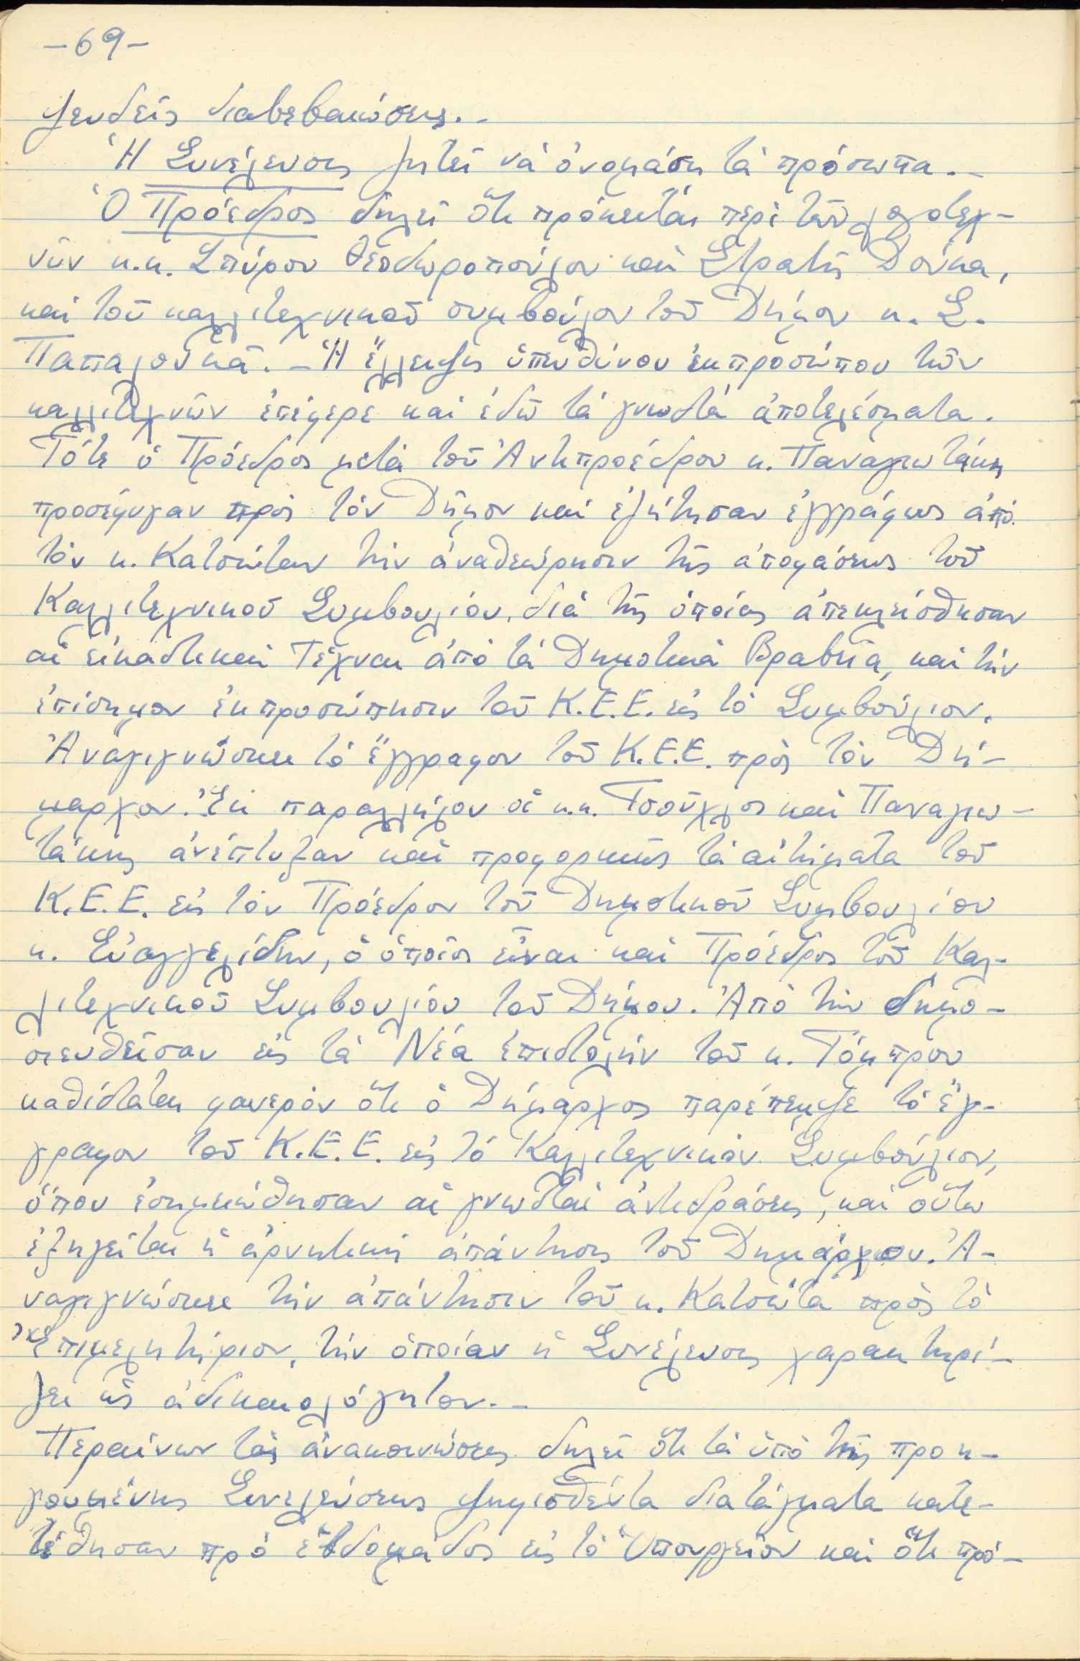 -69-
ψευδεῖς διαβεβαιώσεις.-
Ἡ Συνέλευσις ζητεῖ νά ὀνομάση τά πρόσωπα.-
Ὁ Πρόεδρος δηλεῖ ὅτι πρόκειται περί τῶν λογοτεχ-
νῶν κ.κ. Σπύρου Θεοδωροπούλου καί Στρατῆ Δούκα,
καί τοῦ καλλιτεχνικοῦ συμβούλου τοῦ Δήμου κ. Σ.
Παπαλουκᾶ.- Ἡ ἔλλειψις ὑπευθύνου ἐκπροσώπου τῶν
καλλιτεχνῶν ἐπέφερε καί ἐδῶ τά γνωστά ἀποτελέσματα.
Τότε ὁ Πρόεδρος μετά τοῦ Ἀντιπροέδρου κ. Παναγιωτάκη
προσέφυγαν πρός τόν Δῆμον καί ἐζήτησαν ἐγγράφως ἀπό
τόν κ. Κατσώταν τήν ἀναθεώρησιν τῆς ἀποφάσεως τοῦ
Καλλιτεχνικοῦ Συμβουλίου, διά τῆς ὁποίας ἀπεκλείσθησαν
αἱ εἰκαστικαί Τέχναι ἀπό τά Δημοτικά Βραβεῖα, καί τήν
ἐπίσημον ἐκπροσώπησιν τοῦ Κ.Ε.Ε. εἰς τό Συμβούλιον.
Ἀναγιγνώσκει τό ἔγγραφον τοῦ Κ.Ε.Ε. πρός τόν Δή-
μαρχον. Ἐκ παραλλήλου οἱ κ.κ. Τσοῦχλος καί Παναγιω-
τάκης ἀνέπτυξαν καί προφορικῶς τά αἰτήματα τοῦ
Κ.Ε.Ε. εἰς τόν Πρόεδρον τοῦ Δημοτικοῦ Συμβουλίου
κ. Εὐαγγελίδην, ὁ ὁποῖος εἶναι καί Πρόεδρος τοῦ Καλ-
λιτεχνικοῦ Συμβουλίου τοῦ Δήμου. Ἀπό τήν δημο-
σιευθεῖσαν εἰς τά Νέα ἐπιστολήν τοῦ κ. Τόμπρου
καθίσταται φανερόν ὅτι ὁ Δήμαρχος παρέπεμψε τό ἔγ-
γραφον τοῦ Κ.Ε.Ε. εἰς τό Καλλιτεχνικόν Συμβούλιον,
ὅπου ἐσημειώθησαν αἱ γνωσταί ἀντιδράσεις, καί οὕτω
ἐξηγεῖται ἡ ἀρνητική ἀπάντησις τοῦ Δημάρχου. Ἀ-
ναγιγνώσκει τήν ἀπάντησιν τοῦ κ. Κατσώτα πρός τό
Ἐπιμελητήριον, τήν ὁποίαν ἡ Συνέλευσις χαρακτηρί-
ζει ὡς ἀδικαιολόγητον.-
Περαίνων τάς ἀνακοινώσεις δηλεῖ ὅτι τά ὑπό τῆς προη-
γουμένης Συνελεύσεως ψηφισθέντα διατάγματα κατε-
τέθησαν πρό ἑβδομάδος εἰς τό Ὑπουργεῖον καί ὅτι πρό-